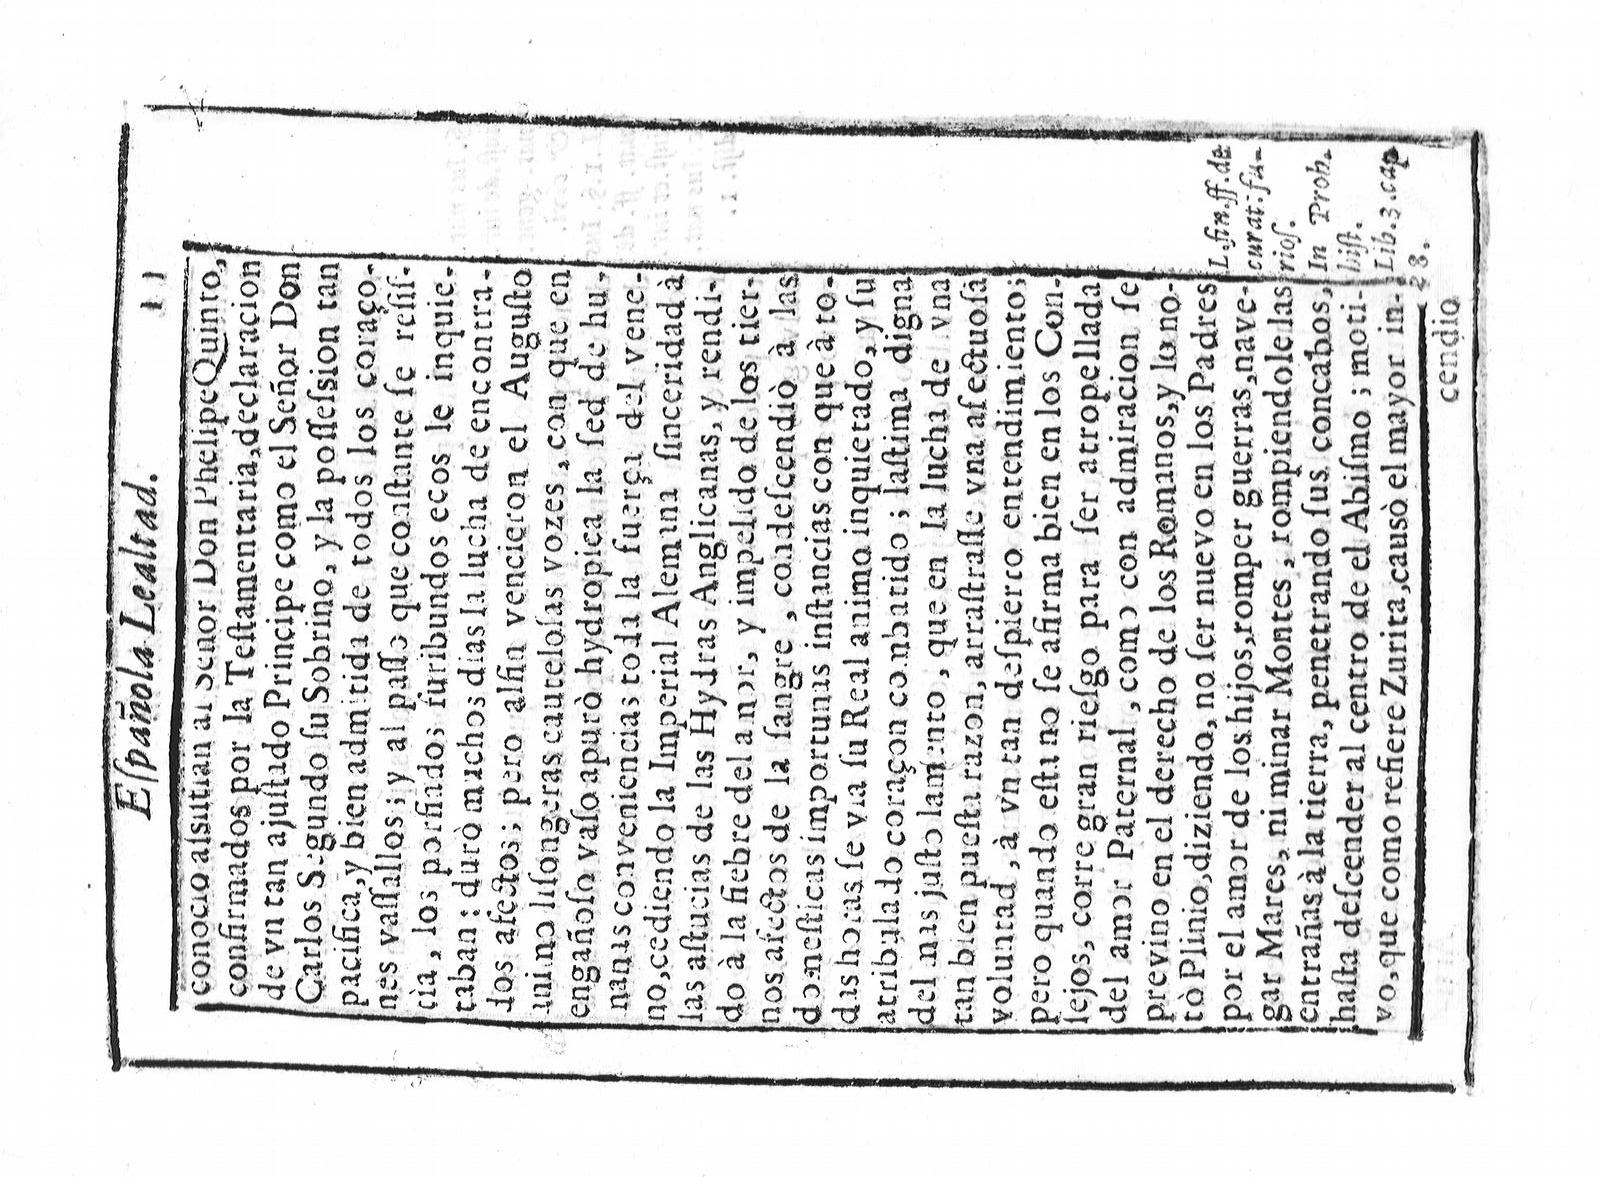 Eſpañola Lealtad. 11
conociò aſsiſtian al Señor Don Phelipe Quinto,
confirmados por la Teſtamentaria, declaracion
de vn tan ajuſtado Principe como el Señor Don
Carlos Segundo ſu Sobrino, y la poſſeſsion tan
pacifica, y bien admitida de todos los coraço-
nes vaſſallos; y al paſſo que conſtante ſe reſiſ-
cia, los porfiados, furibundos ecos le inquie-
taban: durò muchos dias la lucha de encontra-
dos afectos; pero alfin vencieron el Auguſto
animo liſongeras cauteloſas vozes, con que en
engañoſo vaſo apurò hydropica la ſed de hu-
nanas conveniencias toda la fuerça del vene-
no, cediendo la Imperial Alemana ſinceridad à
las aſtucias de las Hydras Anglicanas, y rendi-
do à la fiebre del amor, y impelido de los tier-
nos afectos de la ſangre, condeſcendiò à las
domeſticas importunas inſtancias con que à to-
das horas ſe via ſu Real animo inquietado, y ſu
atribulado coraçon combatido; laſtima digna
del mas juſto lamento, que en la lucha de vna
tan bien pueſta razon, arraſtraſſe vna afectuoſa
voluntad, à vn tan deſpierto entendimiento;
pero quando eſta no ſe afirma bien en los Con-
ſejos, corre gran rieſgo para ſer atropellada
del amor Paternal, como con admiracion ſe
previno en el derecho de los Romanos, y lo no-
tò Plinio, diziendo, no ſer nuevo en los Padres
por el amor de los hijos, romper guerras, nave-
gar Mares, ni minar Montes, rompiendole las
entrañas à la tierra, penetrando ſus concabos,
haſta deſcender al centro de el Abiſmo; moti-
vo, que como refiere Zurita, causò el mayor in-
cendio
L. fin. ff. de
curat. fu-
rioſ.
In Proh.
hiſt.
Lib. 3. cap
28.